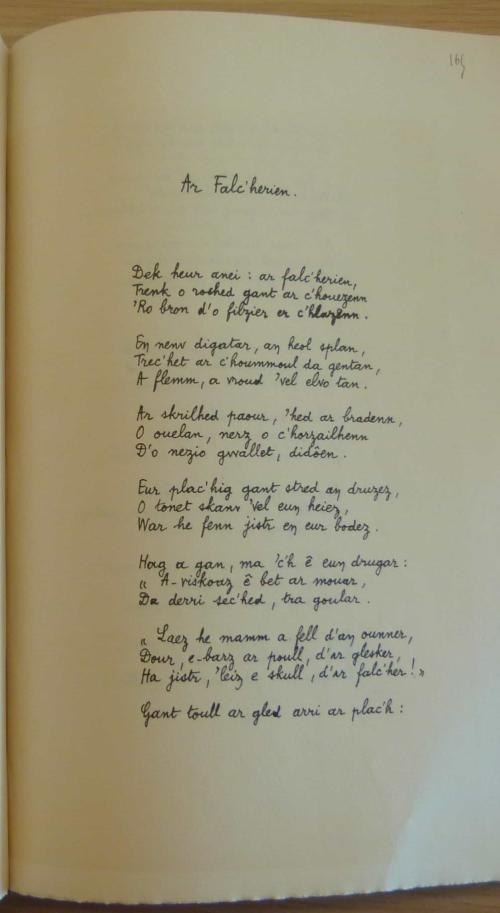 169
Ar Falc'herien.
Dek heur anei : ar falc'herien,
Trenk o roched gant ar c'houezenn
'Ro bron d'o filzier er c'hlazenn.
En nenv digatar, an heol splan,
Trec'het ar c'hoummoul da gentan,
A flemm, a vroud 'vel elvo tan.
Ar skrilhed paour, 'hed ar bradenn,
O ouelan, nerz o c'horzailhenn
D'o nezio gwallet, didôen.
Eur plac'hig gant stred an druzez,
O tonet skanv 'vel eun heiez,
War he fenn jistr en eur bodez.
Hag a gan, ma 'c'h ê eun drugar :
« A-viskoaz ê bet ar mouar,
Da derri sec'hed, tra goular.
„ Laez he mamm a fell d'an ounner,
Dour, e-barz ar poull, d'ar glesker,
Ha jistr, 'leiz e skull, d'ar falc'her ! »
Gant toull ar gled arri ar plac'h :